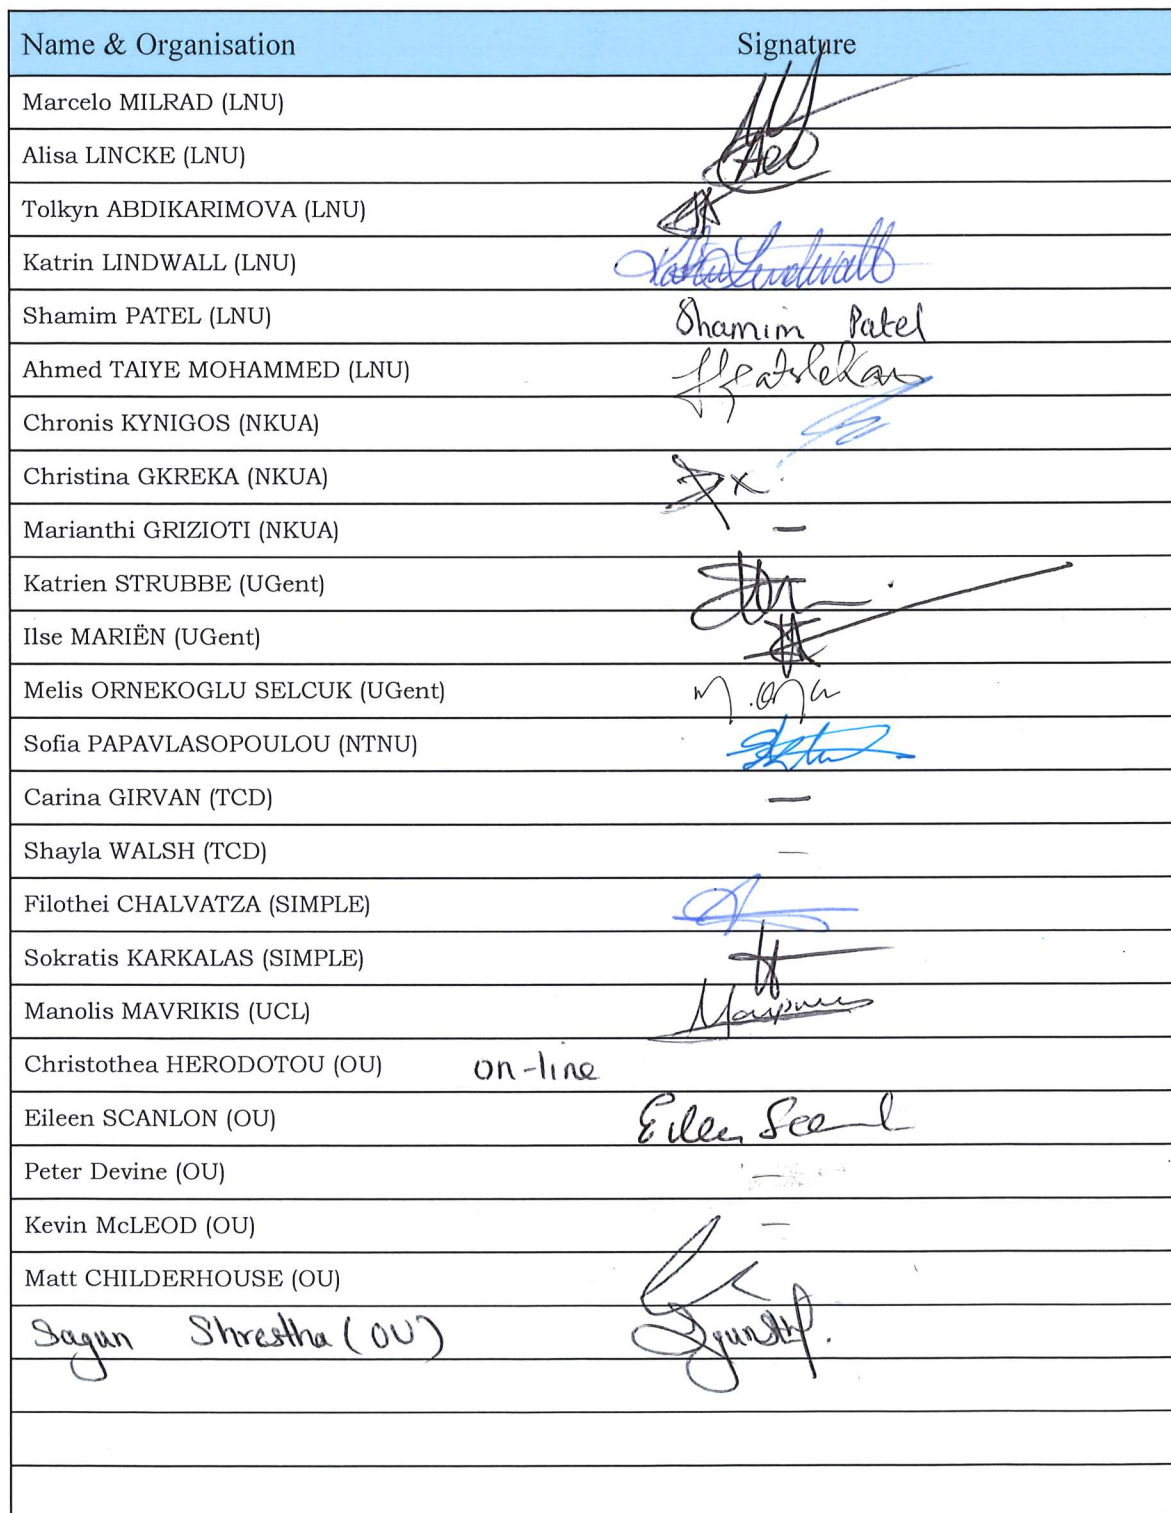 Name & Organisation Signature
Marcelo MILRAD (LNU)
Alisa LINCKE (LNU)
Tolkyn ABDIKARIMOVA (LNU)
Katrin LINDWALL (LNU) Katrin Lindwall
Shamim PATEL (LNU) Shamim Patel
Ahmed TAIYE MOHAMMED (LNU)
Chronis KYNIGOS (NKUA)
Christina GKREKA (NKUA)
Marianthi GRIZIOTI (NKUA) —
Katrien STRUBBE (UGent)
Ilse MARIËN (UGent)
Melis ORNEKOGLU SELCUK (UGent)
Sofia PAPAVLASOPOULOU (NTNU)
Carina GIRVAN (TCD) —
Shayla WALSH (TCD) —
Filothei CHALVATZA (SIMPLE)
Sokratis KARKALAS (SIMPLE)
Manolis MAVRIKIS (UCL)
Christothea HERODOTOU (OU) on-line
Eileen SCANLON (OU) Eileen
Peter Devine (OU) —
Kevin McLEOD (OU) —
Matt CHILDERHOUSE (OU)
Sagun Shrestha (OU)